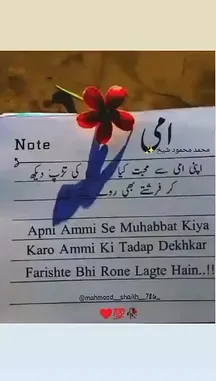 امی
Note
محمد محمود شیخ
اپنی امی سے محبت کیا کی تڑپ دیکھ
کر فرشتے بھی رو
Apni Ammi Se Muhabbat Kiya
Karo Ammi Ki Tadap Dekhkar
Farishte Bhi Rone Lagte Hain..!!
@mahmood__shaikh__786_
❤️💯🥀